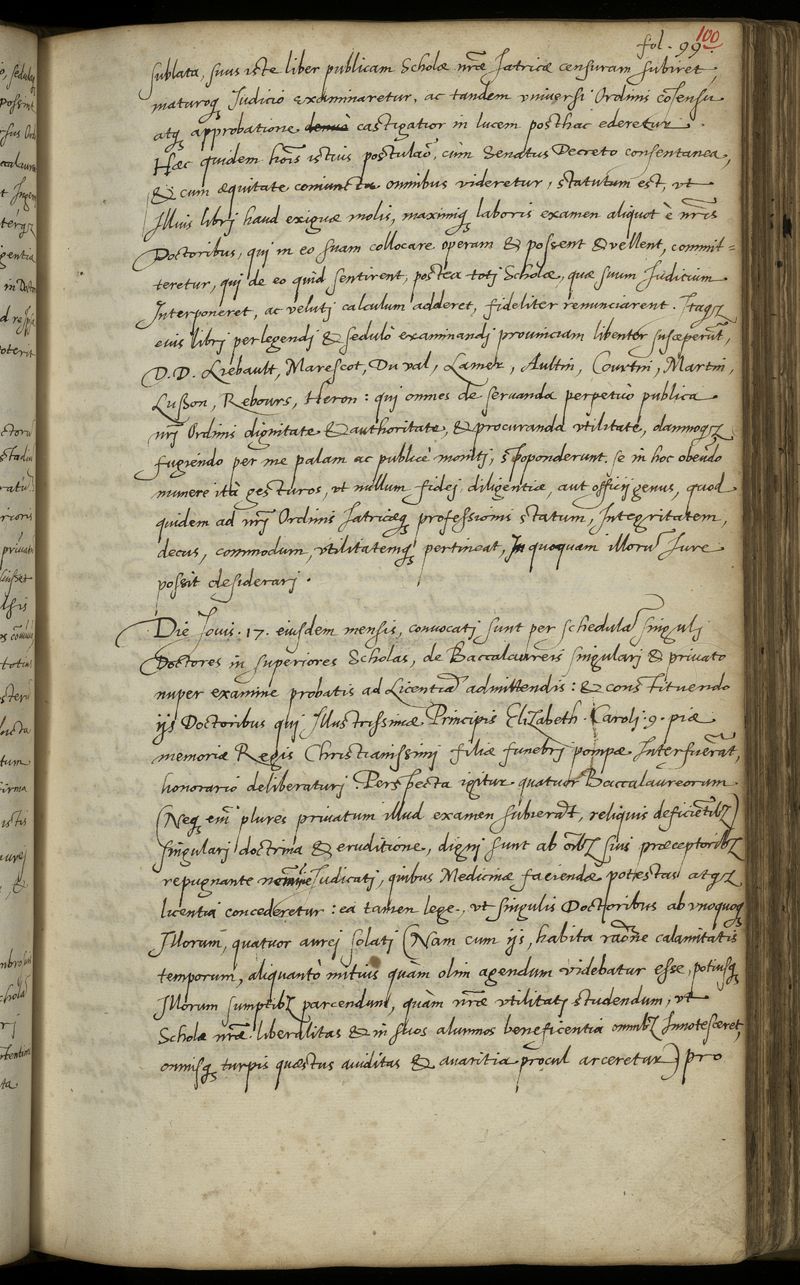 fol. 99. 100
sublata, suus iste liber publicam Scholæ nr̃æ Iatricæ censuram subiret,
maturoq; Iudicio examinaretur, ac tandem vniuersi Ordinis cõsensu
atq; approbatione denuò castigatior in lucem posthac ederetur.
Hæc quidem hoĩs istius postulaõ, cùm Senatus Decreto consentanea,
& cum æquitate coniuncta omnibus videretur, statutum est, vt
Illius librj haud exiguæ molis, maximiq; laboris examen aliquot è nr̃is
Doctoribus, qui in eo suam collocare operam & possent & vellent, commit=
teretur, qui de eo quid sentirent, postea totj Scholæ, quæ suum Iudicium
Interponeret, ac velutj calculum adderet, fideliter renunciarent. Itaq;
eius librj perlegendj & sedulò examinandj prouinciam libenter susceperũt,
D.D. Liebault, Marescot, Du val, Lamer, Aultin, Courtin, Martin,
Lusson, Rebours, Heron: qui omnes de seruanda perpetuò publica
nr̃j Ordinis dignitate & authoritate, & procuranda vtilitate, damnoq;
fugiendo per me palam ac publicè monitj, spoponderunt se in hoc obeũdo
munere ità gesturos, vt nullum fidej diligentiæ, aut officij genus, quod
quidem ad nr̃j Ordinis Iatricæq; professionis statum, Integritatem,
decus, commodum, vtilitatemq; pertineat, In quoquam illorũ Iure
possit desiderarj.
Die Iouis. 17. eiusdem mensis, conuocatj sunt per schedulã singulj
Doctores in superiores Scholas, de Baccalaureis singularj & priuato
nuper examine probatis ad Licentiã admittendis: & constituendo
ijs Doctoribus qui Illustrissimæ Principis Elizabeth. Carolj. 9. piæ
memoriæ Regis Christianissimj filiæ funebrj pompæ Interfuerãt,
honorario deliberaturj. Perspecta igitur quatuor Baccalaureorum
(Neq; em̃ plures priuatum illud examen subierãt, reliquis deficiẽtib;)
singularj doctrina & eruditione, dignj sunt ab oĩb; suis præceptorib;
repugnante nemine Iudicatj, quibus Medicinæ faciendæ potestas atq;
licentia concederetur: ea tamen lege, vt singulis Doctoribus ab vnoquoq;
Illorum, quatuor aurej solatj (Nam cum ijs, habita raõne calamitatis
temporum, aliquantò mitius quàm olim agendum videbatur esse, potiusq;
Illorum sumptib; parcendum, quàm nr̃æ vtilitatj studendum, vt
Scholæ nr̃æ liberalitas & in suos alumnos beneficentia omnib; Innotesceret,
omnisq; turpis quæstus auiditas & auaritia procul arceretur) pro